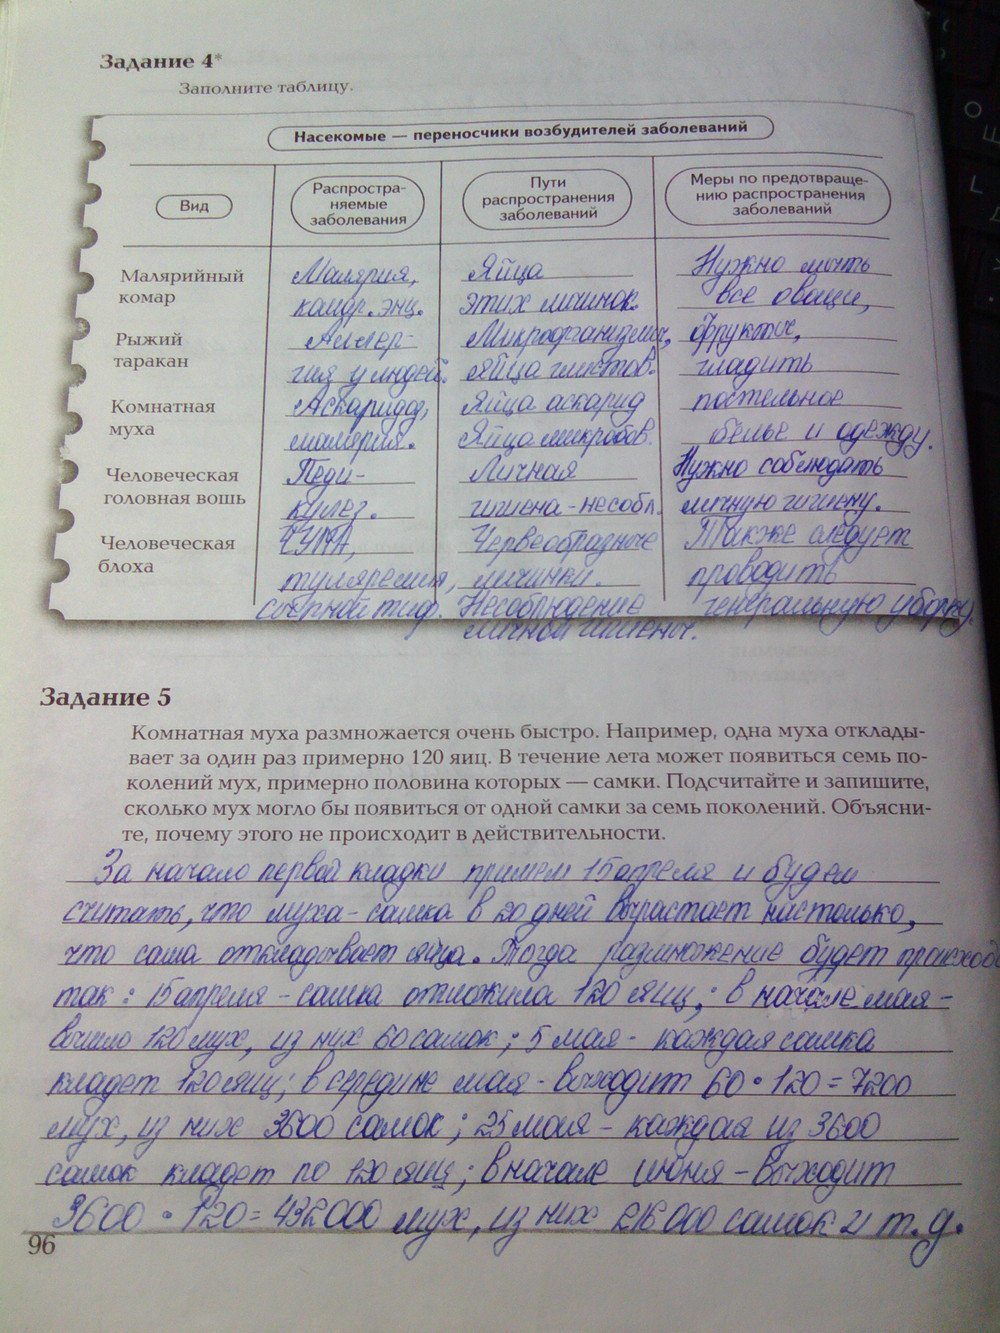 Задание 4*
Заполните таблицу.
Насекомые — переносчики возбудителей заболеваний
Вид
Распростра-
няемые
заболевания
Пути
распространения
заболеваний
Меры по предотвраще-
нию распространения
заболеваний
Малярийный
комар
Малярия,
Яйца
этих личинок.
Нужно мыть
все овощи,
Рыжий
таракан
Аллер-
гия у людей.
Микроорганизмы,
Яйца глистов.
фрукты,
гладить
Комнатная
муха
Аскаридоз,
малярия.
Яйца аскарид
Яйца микробов.
постельное
белье и одежду.
Человеческая
головная вошь
Педи-
кулез.
Личная
гигиена-несобл.
Нужно соблюдать
личную гигиену.
Человеческая
блоха
ЧУМА,
туляремия,
сыпной тиф.
Червеобразные
личинки.
Несоблюдение
личной гигиены.
Также следует
проводить
генеральную уборку.
Задание 5
Комнатная муха размножается очень быстро. Например, одна муха отклады-
вает за один раз примерно 120 яиц. В течение лета может появиться семь по-
колений мух, примерно половина которых — самки. Подсчитайте и запишите,
сколько мух могло бы появиться от одной самки за семь поколений. Объясни-
те, почему этого не происходит в действительности.
За начало первой кладки примем 15 апреля и будем
считать, что муха-самка в 20 дней вырастает настолько,
что сама откладывает яйца. Тогда размножение будет происход
так: 15 апреля - самка отложила 120 яиц; в начале мая -
вышло 120 мух, из них 60 самок; 5 мая - каждая самка
кладет 120 яиц; в середине мая - выходит 60 · 120 = 7200
мух, из них 3600 самок; 25 мая - каждая из 3600
самок кладет по 120 яиц; в начале июня - выходит
3600 · 120 = 432000 мух, из них 216 000 самок и т.д.
96